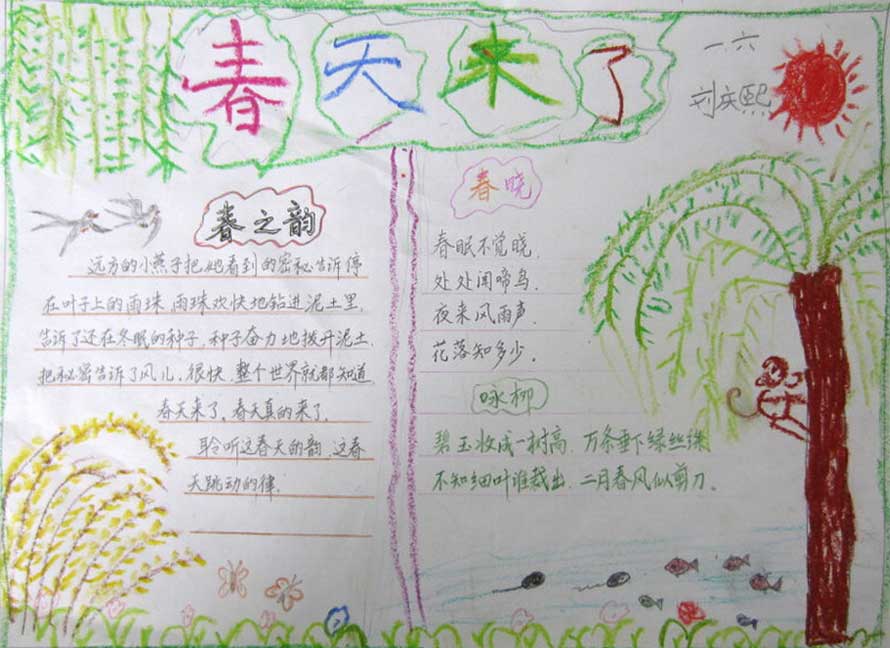 春天来了
一.六
刘庆熙
春之韵
远方的小燕子把她看到的密秘告诉停
在叶子上的雨珠,雨珠欢快地钻进泥土里,
告诉了还在冬眠的种子,种子奋力地拨开泥土,
把秘密告诉了风儿,很快,整个世界就都知道
春天来了,春天真的来了,
聆听这春天的韵,这春
天跳动的律,
春晓
春眠不觉晓,
处处闻啼鸟,
夜来风雨声,
花落知多少。
咏柳
碧玉妆成一树高,万条垂下绿丝绦
不知细叶谁裁出,二月春风似剪刀。